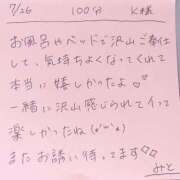 7/26 100分 K様
お風呂やベッドで沢山ご奉仕
して、気持ちよくなってくれて
本当に嬉しかったよ♡
一緒に沢山感じられてイって
楽しかったね(๑'ᴗ'๑)
またお誘い待ってます♡♡
みと